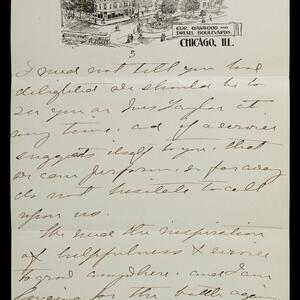 COR. OAKWOOD AND
DREXEL BOULEVARDS.
CHICAGO, ILL.
3
I need not tell you how
delighted we should be to
see you or Mrs Taylor at
any time, and if a service
suggests itself to you, that
we can perform, or far away
do not hesitate to call
upon us.
We need the inspiration
of helpfulness & service
to good anywhere, and I am
for the battle again